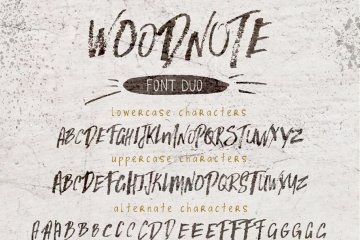 WOODNOTE
FONT DUO
lowercase characters
ABCDEFGHIJKLMNOPQRSTUVWXYZ
uppercase characters
ABCDEFGHIJKLMNOPQRSTUVWXYZ
alternate characters
AAABBBCCCCDDEEEEFFFFGGGGG